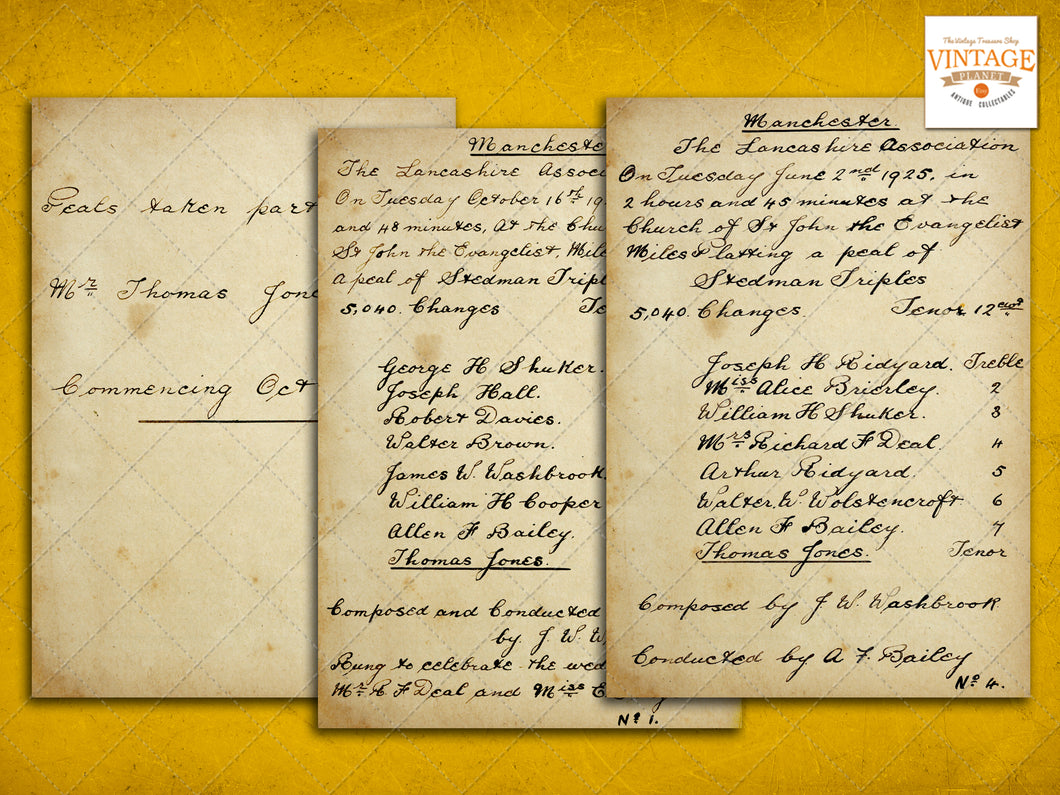 The Vintage Treasure Shop
VINTAGE
PLANET
Etsy
ANTIQUE COLLECTABLES
Peals taken part
Mr Thomas Jone
Commencing Oct
Mancheste
The Lancashire Associ
On Tuesday October 16th 19
and 48 minutes, at the Chu
St John the Evangelist, Mile
a peal of Stedman Tripl
5,040. Changes Te
George H Shuker.
Joseph Hall.
Robert Davies.
Walter Brown.
James W. Washbrook.
William H Cooper
Allen F Bailey.
Thomas Jones.
Composed and Conducted
by. J. W. W
Rung to celebrate the wed
Mr R F Deal and Miss E
No 1.
Manchester.
The Lancashire Association
On Tuesday June 2nd 1925, in
2 hours and 45 minutes at the
Church of St John the Evangelist
Miles Platting a peal of
Stedman Triples
5,040. Changes. Tenor 12 cwt
Joseph H Ridyard. Treble
Miss Alice Brierley. 2
William H Shuker. 3
Mrs Richard F Deal. 4
Arthur Ridyard. 5
Walter. W. Wolstencroft 6
Allen F Bailey. 7
Thomas Jones. Tenor
Composed by J. W. Washbrook
Conducted by A F. Bailey
No 4.